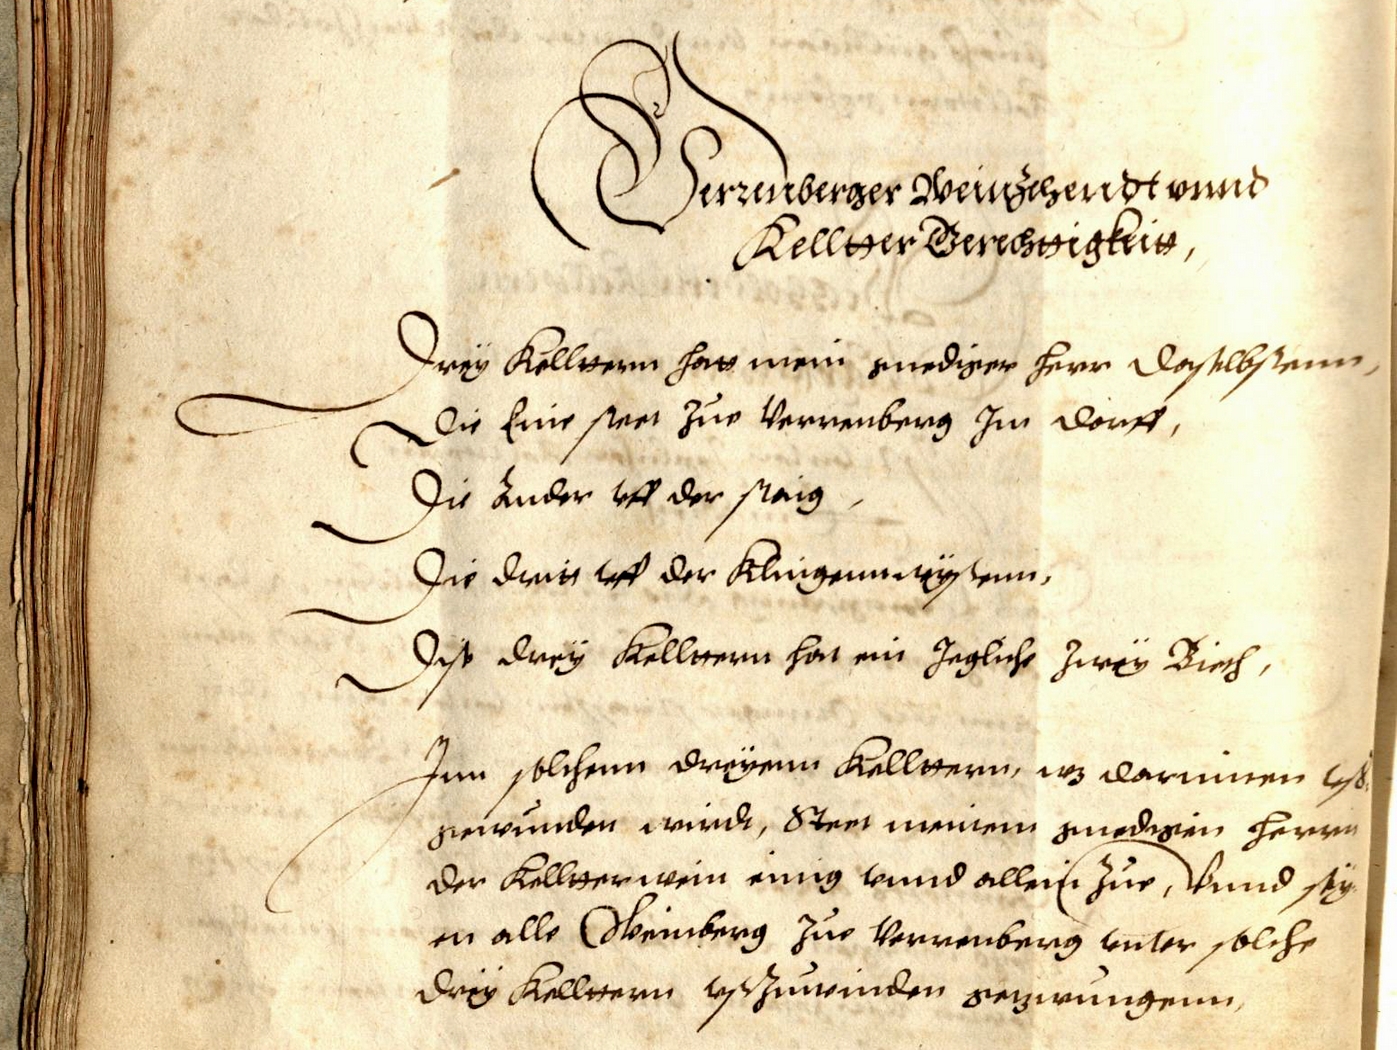 Verrenberger Weinzehendt vnnd
Kelltter Gerechttigkeitt,
Drey Kellttern hatt mein gnediger herr daselbstenn,
Die Eine steet Zue Verrenberg Im dorff,
Die Ander vff der staig,
Die dritt vff der Klingenn
Dise drey Kellttern hat ein Jegliche Zwey Biett,
Inn solchenn dreyenn Kellttern, wz darinnen vß
gewunden wirdt, Steet meinem gnedigen herrn
der Kelltterwein einig vnnd allein Zue, Vnnd sey
en alle Weinberg Zue Verrenberg vnter solche
drey Kellttern vßZuwinden gezwungenn,